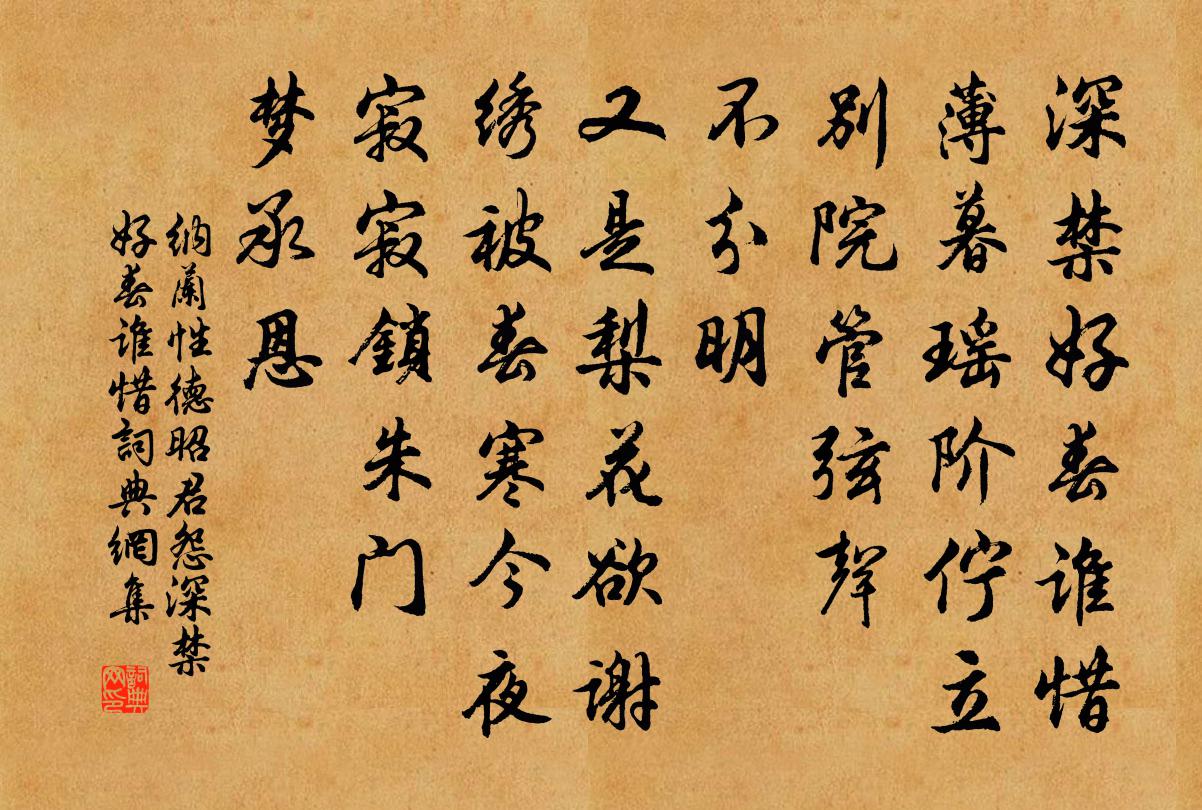 深禁好春谁惜
薄暮瑶阶伫立
别院管弦声
不分明
又是梨花欲谢
绣被春寒今夜
寂寂鎖朱门
梦承恩
纳蘭性德昭君怨深禁
好春谁惜詞典網集
詞典
网印